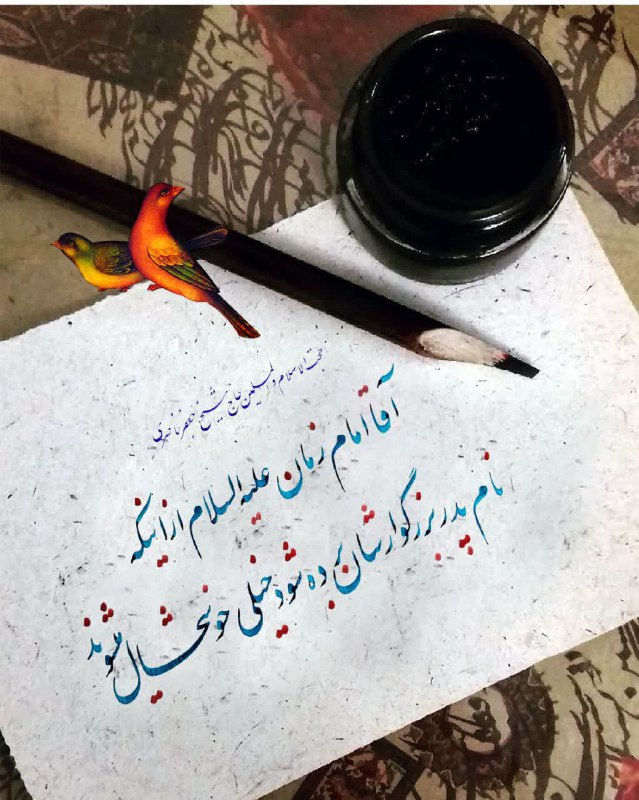 حجت الاسلام والمسلمین حاج شیخ جعفر ناصری
آقا امام زمان علیه السلام از اینکه
نام پدر بزرگوارشان برده شود خیلی خوشحال میشوند